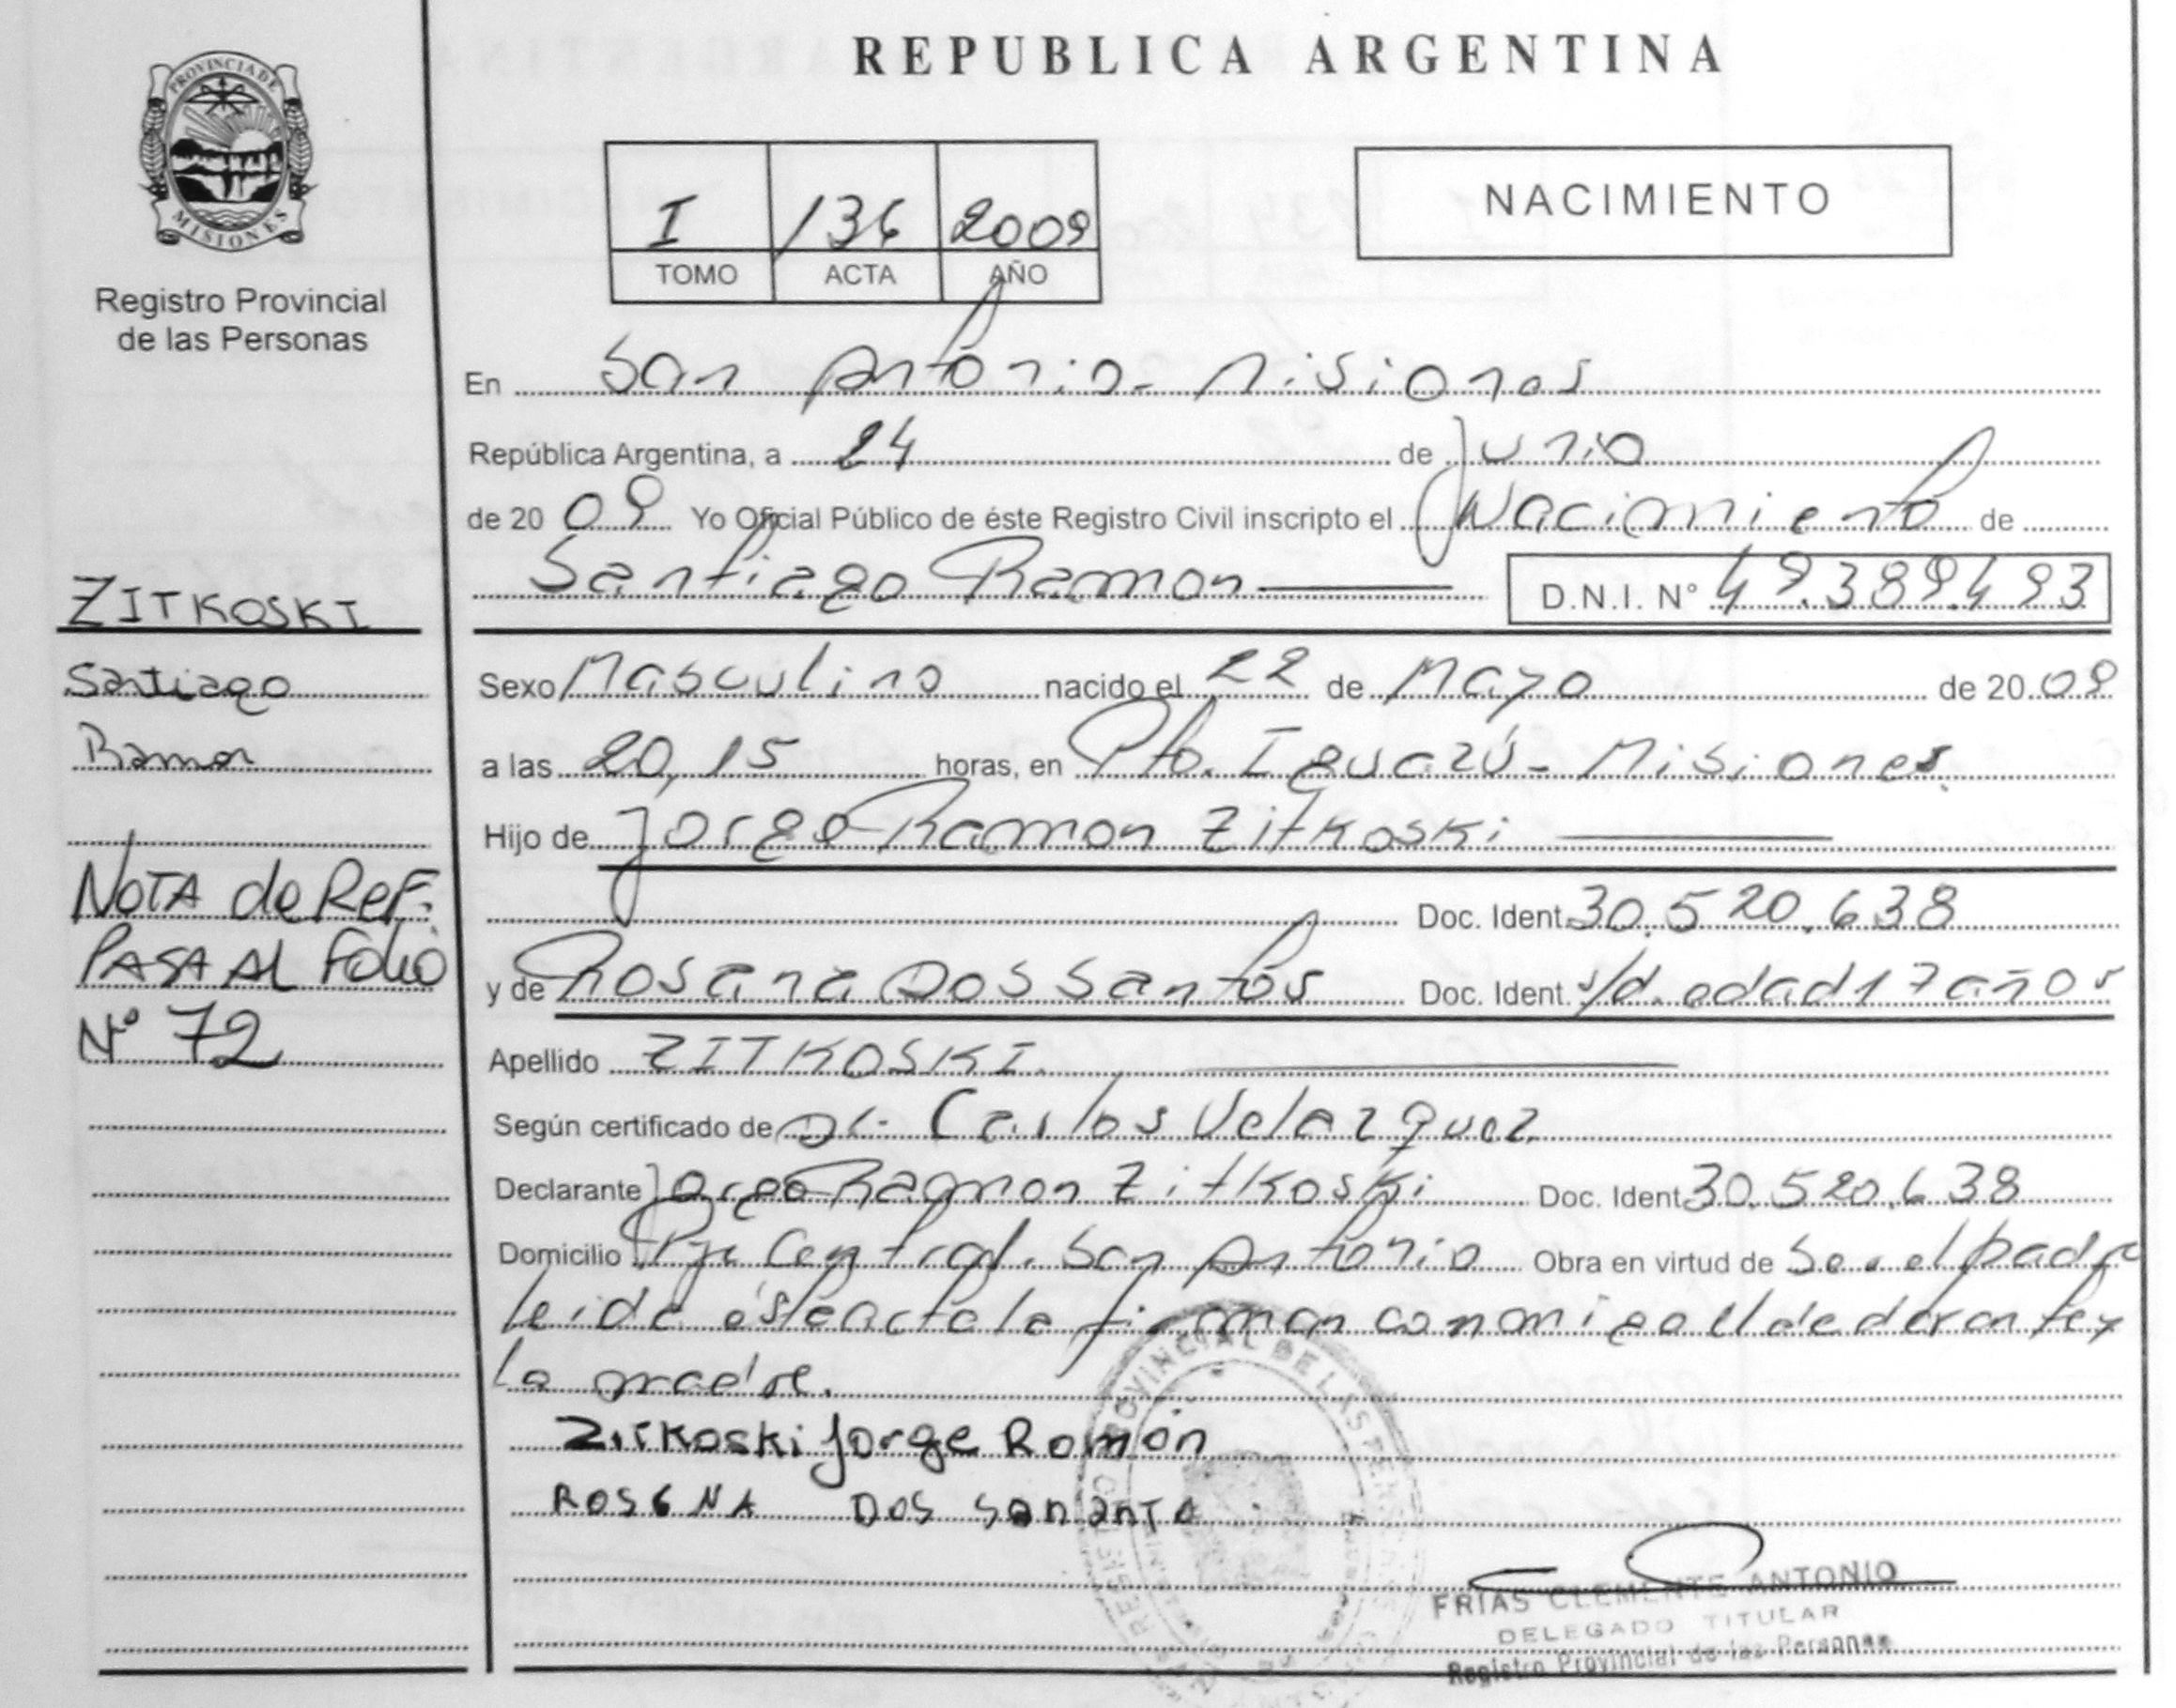 REPUBLICA ARGENTINA
PROVINCIA DE
MISIONES
Registro Provincial
de las Personas
I 136 2009
TOMO ACTA AÑO
NACIMIENTO
En San Antonio - Misiones
República Argentina, a 24 de Junio
de 20 09 Yo Oficial Público de éste Registro Civil inscripto el Nacimiento de
Santiago Ramon D.N.I. Nº 49.389.493
ZITKOSKI
Santiago
Ramon
NOTA de REF.
PASA AL Folio
Nº 72
Sexo Masculino nacido el 22 de Mayo de 20 09
a las 20,15 horas, en Pto. Iguazú - Misiones.
Hijo de Jorge Ramon Zitkoski
Doc. Ident. 30.520.638
y de Rosana Dos Santos Doc. Ident. s/d. edad 17 años
Apellido ZITKOSKI.
Según certificado de Dr. Carlos Velazquez
Declarante Jorge Ramon Zitkoski Doc. Ident. 30.520.638
Domicilio Pje Central. San Antonio Obra en virtud de Ser el padre
leida este acta la firman conmigo el declarante y
la madre.
Zitkoski Jorge Ramón
ROSENA DOS SANANTO
REGISTRO PROVINCIAL DE LAS PERSONAS
FRIAS CLEMENTE ANTONIO
DELEGADO TITULAR
Registro Provincial de las Personas